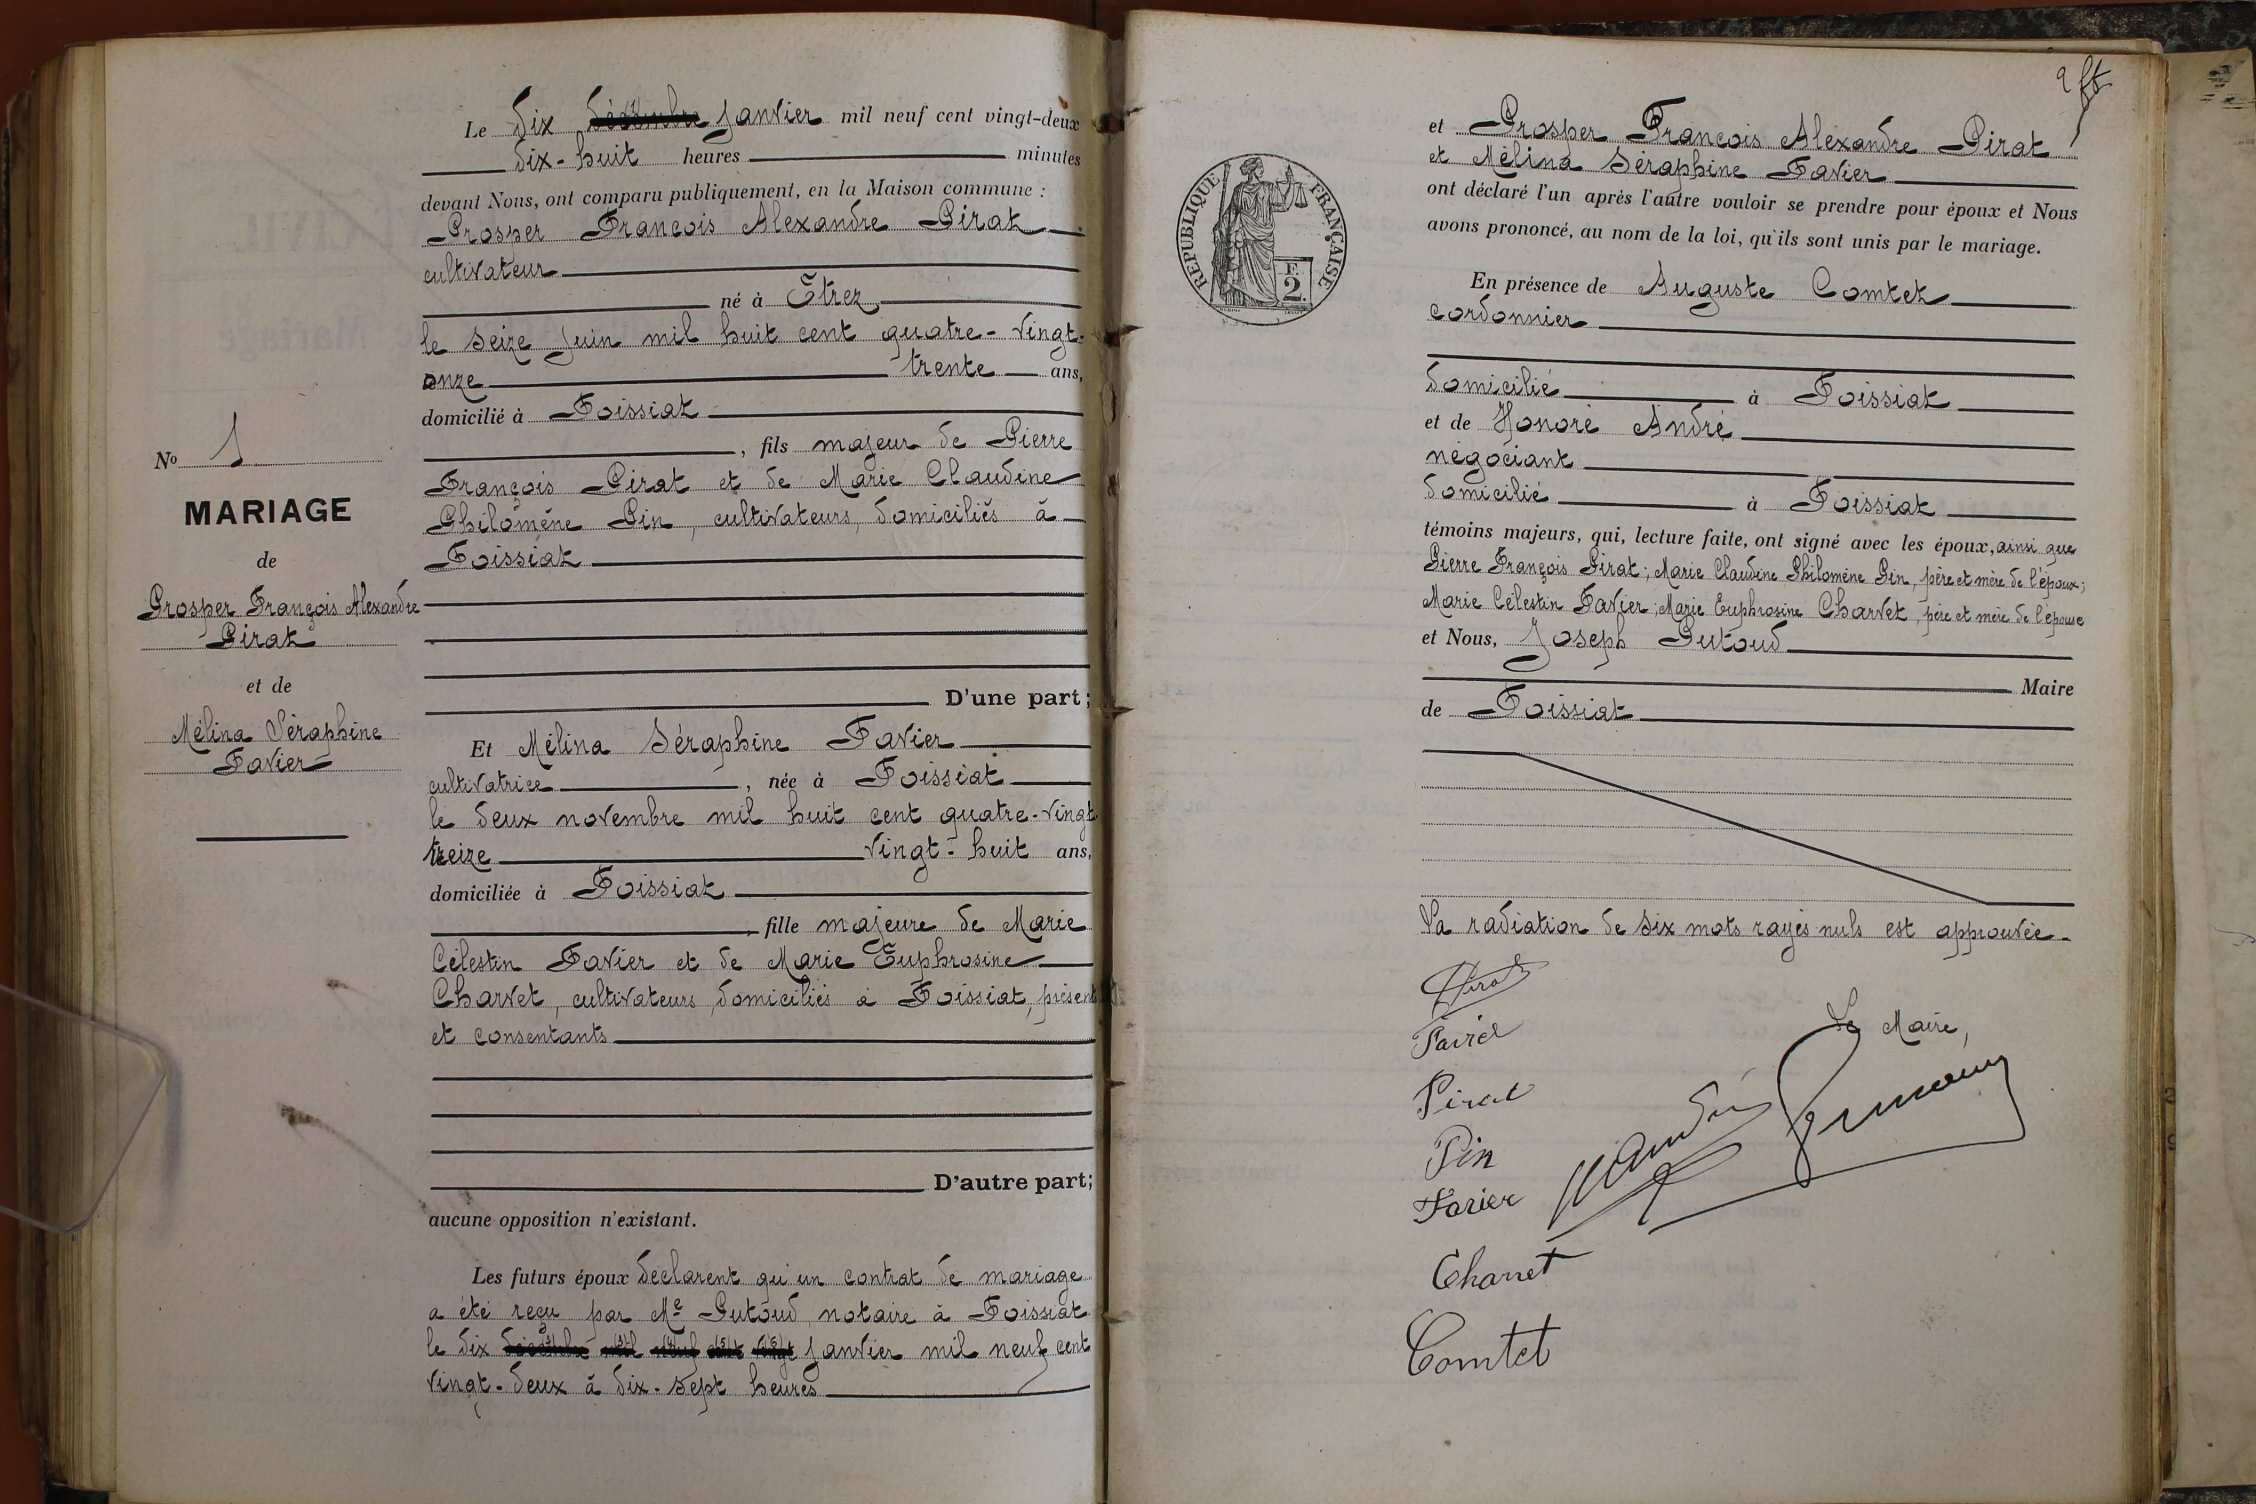 Le dix décembre janvier mil neuf cent vingt-deux
dix-huit heures minutes
devant Nous, ont comparu publiquement, en la Maison commune :
Prosper François Alexandre Pirat
cultivateur
né à Étrez
le seize juin mil huit cent quatre-vingt-
onze trente ans,
domicilié à Foissiat
, fils majeur de Pierre
François Pirat et de Marie Claudine
Philomène Pin, cultivateurs, domiciliés à
Foissiat
D'une part;
No 1
MARIAGE
de
Prosper François Alexandre
Pirat
et de
Mélina Séraphine
Favier
Et Mélina Séraphine Favier
cultivatrice, née à Foissiat
le deux novembre mil huit cent quatre-vingt
treize vingt-huit ans,
domiciliée à Foissiat
, fille majeure de Marie
Célestin Favier et de Marie Euphrosine
Charvet, cultivateurs, domiciliés à Foissiat, présent
et consentants
D'autre part;
aucune opposition n'existant.
Les futurs époux déclarent qu'un contrat de mariage
a été reçu par Me Putoud notaire à Foissiat
le dix décembre mil neuf cent vingt janvier mil neuf cent
vingt-deux à dix-sept heures
2
RÉPUBLIQUE FRANÇAISE
F.
2
et Prosper François Alexandre Pirat
et Mélina Séraphine Favier
ont déclaré l'un après l'autre vouloir se prendre pour époux et Nous
avons prononcé, au nom de la loi, qu'ils sont unis par le mariage.
En présence de Auguste Comtet
cordonnier
domicilié à Foissiat
et de Honoré André
négociant
domicilié à Foissiat
témoins majeurs, qui, lecture faite, ont signé avec les époux, ainsi que
Pierre François Pirat; Marie Claudine Philomène Pin, père et mère de l'époux;
Marie Célestin Favier; Marie Euphrosine Charvet, père et mère de l'épouse
et Nous, Joseph Putoud
Maire
de Foissiat
La radiation de six mots rayés nuls est approuvée.
Pirat
Favier
Le Maire,
Pirat
Pin
H André
Favier
Charvet
Comtet